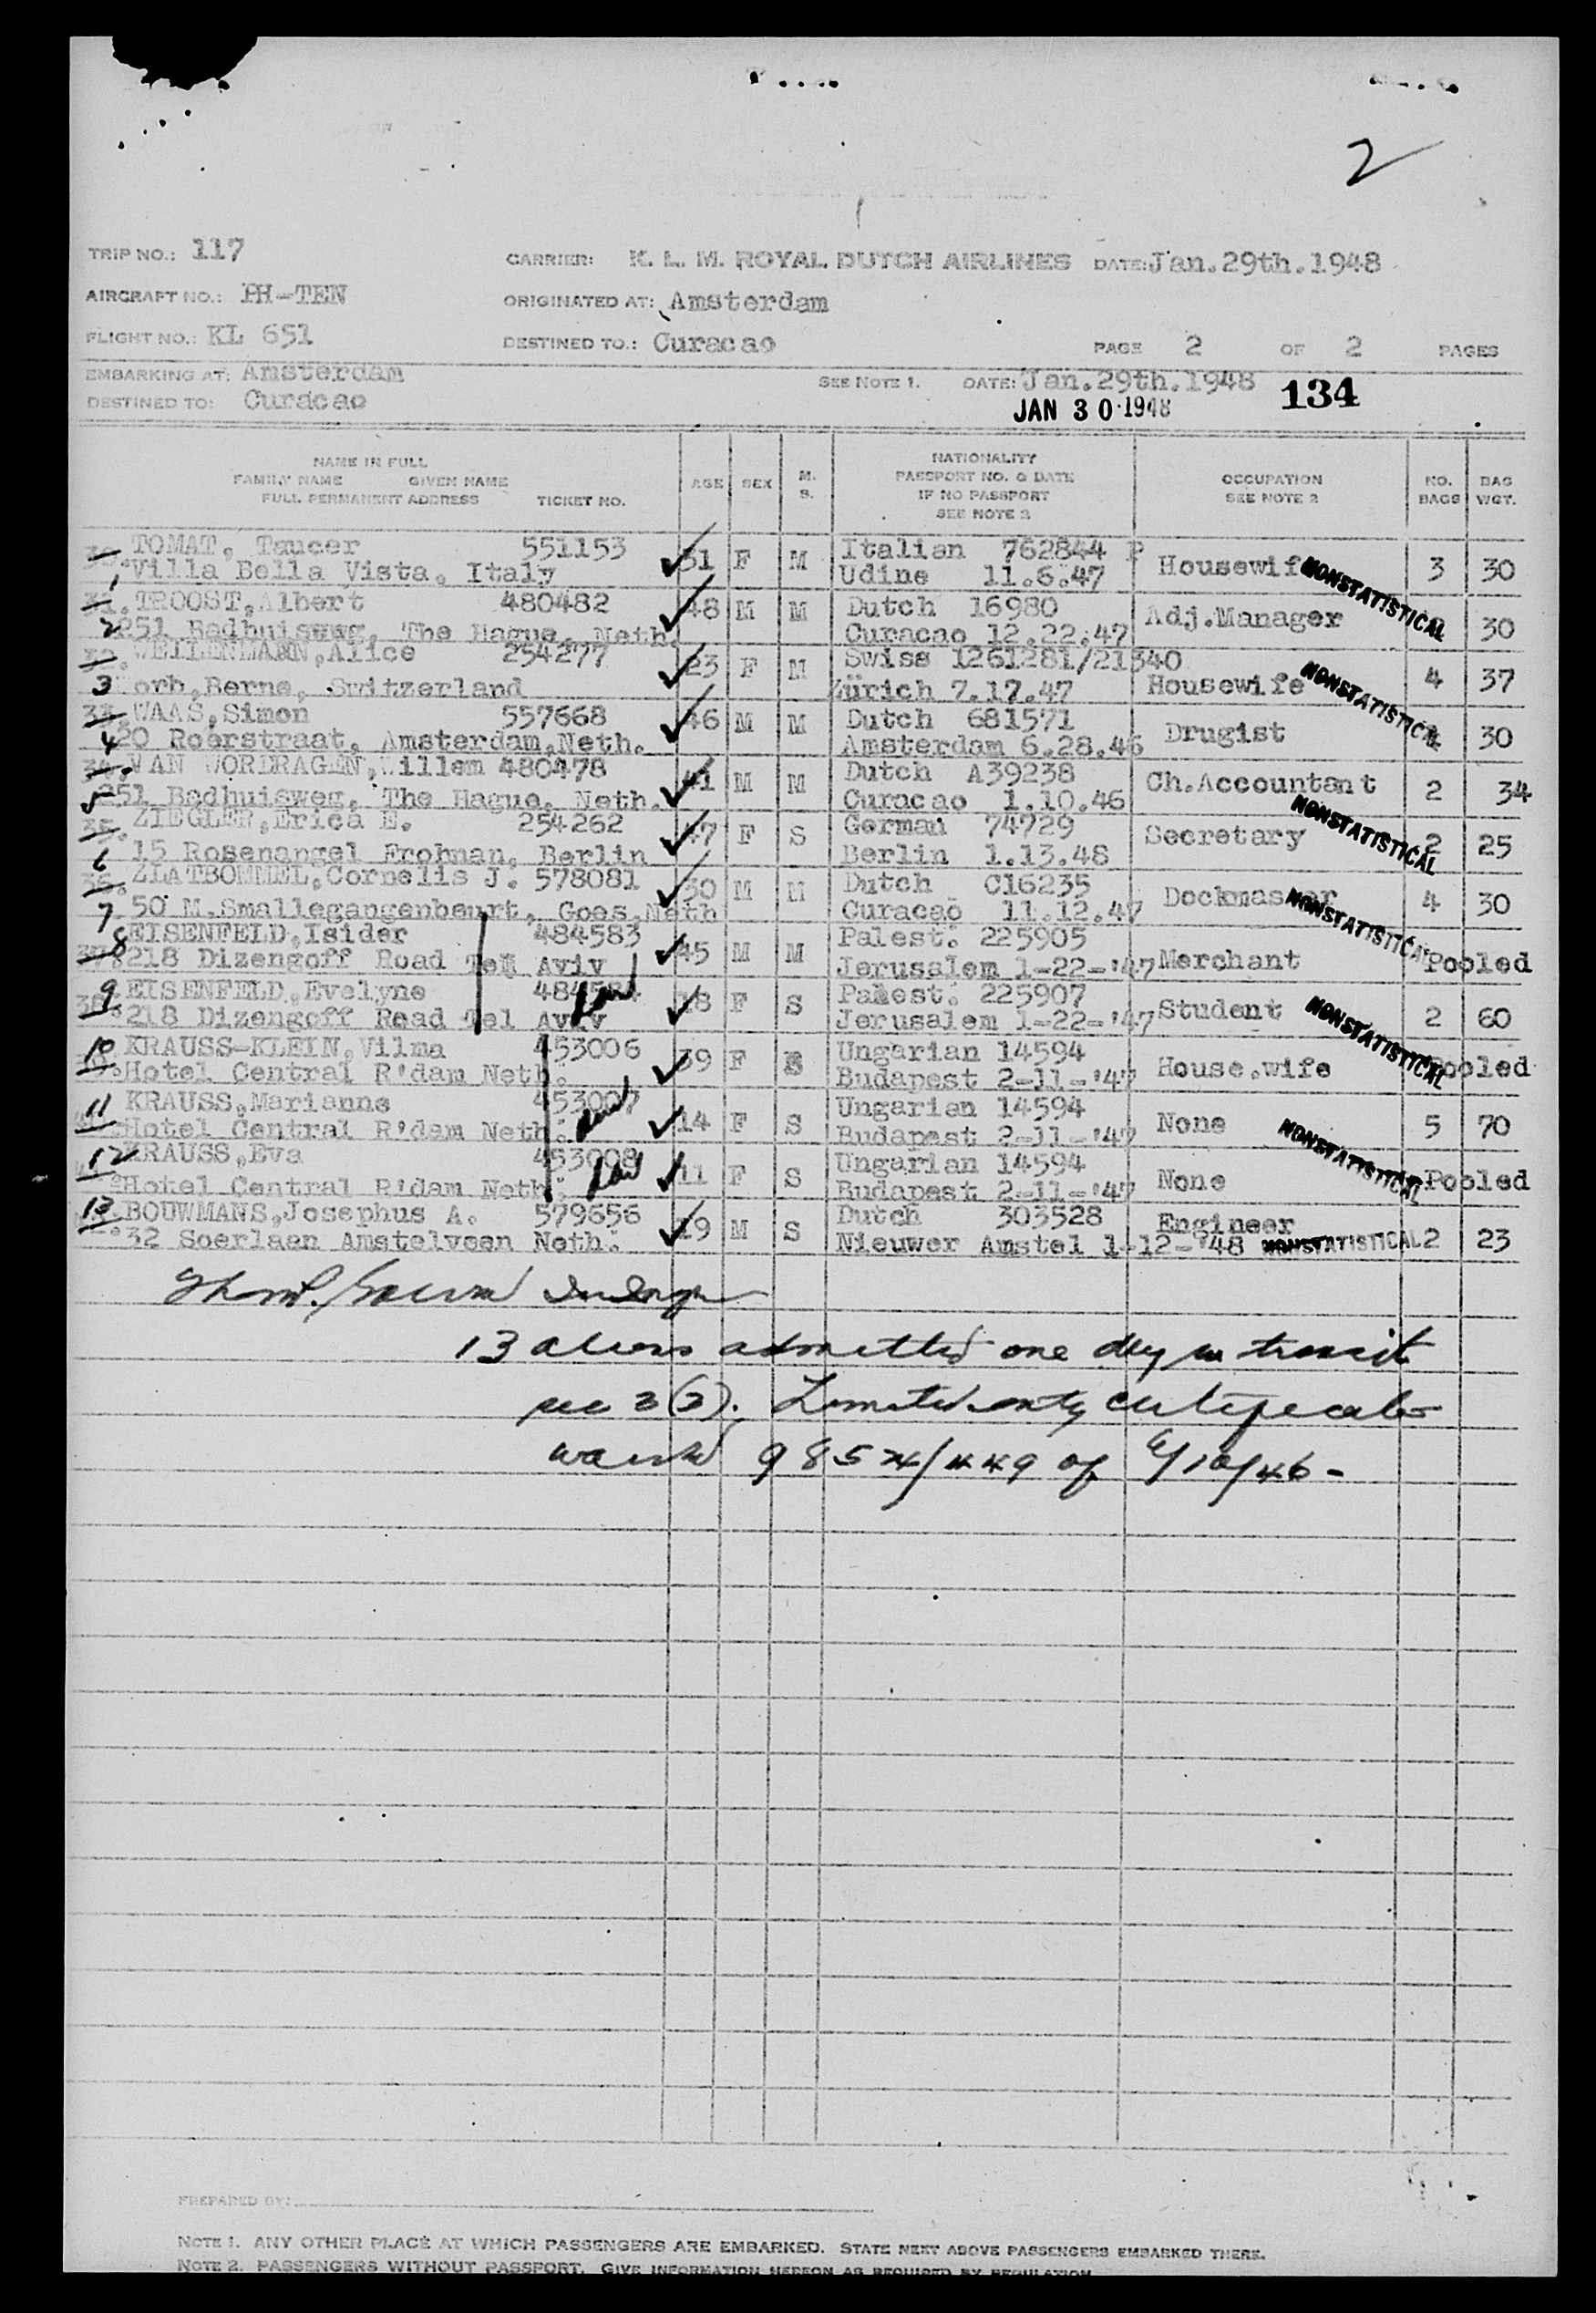 2
TRIP NO.: 117 CARRIER: K. L. M. ROYAL DUTCH AIRLINES DATE: Jan.29th.1948
AIRCRAFT NO.: PH-TEN ORIGINATED AT: Amsterdam
FLIGHT NO.: KL 651 DESTINED TO.: Curacao PAGE 2 OF 2 PAGES
EMBARKING AT: Amsterdam SEE NOTE 1. DATE: Jan.29th.1948 134
DESTINED TO: Curacao JAN 30 1948
NAME IN FULL
FAMILY NAME GIVEN NAME
FULL PERMANENT ADDRESS TICKET NO. AGE SEX M. S. NATIONALITY PASSPORT NO. & DATE IF NO PASSPORT SEE NOTE 2 OCCUPATION SEE NOTE 2 NO. BAGS BAG WGT.
1 TOMAT, Taucer 551153 31 F M Italian 762844 P Housewife NONSTATISTICAL 3 30
Villa Bella Vista, Italy Udine 11.6.47
2 TROOST,Albert 480482 48 M M Dutch 16980 Adj.Manager 30
251 Badhuisweg, The Hague, Neth. Curacao 12.22.47
3 WELLENMANN,Alice 254277 23 F M Swiss 1261281/21340 Housewife NONSTATISTICAL 4 37
Worb,Berne, Switzerland Zürich 7.17.47
4 WAAS,Simon 557668 46 M M Dutch 681571 Drugist 30
20 Roerstraat, Amsterdam,Neth. Amsterdam 6.28.46
5 VAN WORDRAGEN,Willem 480478 41 M M Dutch A39238 Ch.Accountant 2 34
251 Badhuisweg, The Hague, Neth. Curacao 1.10.46 NONSTATISTICAL
6 ZIEGLER,Erica E. 254262 47 F S German 74729 Secretary 2 25
15 Rosenangel Frohnan, Berlin Berlin 1.13.48
7 ZLATBOMMEL,Cornelis J. 578081 30 M M Dutch C16235 Dockmaster NONSTATISTICAL 4 30
50 M.Smallegangenbuurt, Goes,Neth Curacao 11.12.47
8 EISENFELD,Isider 484583 45 M M Palest. 225905 Merchant Pooled
218 Dizengoff Road Tel Aviv Jerusalem 1-22-'47
9 EISENFELD,Evelyne 484584 18 F S Palest. 225907 Student NONSTATISTICAL 2 60
218 Dizengoff Road Tel Aviv Jerusalem 1-22-'47
10 KRAUSS-KLEIN,Vilma 453006 39 F Ungarian 14594 House.wife Pooled
Hotel Central R'dam Neth. Budapest 2-11-'47
11 KRAUSS,Marianne 453007 14 F S Ungarian 14594 None 5 70
Hotel Central R'dam Neth. Budapest 2-11-'47
12 KRAUSS,Eva 453008 11 F S Ungarian 14594 None NONSTATISTICAL Pooled
Hotel Central R'dam Neth. Budapest 2-11-'47
13 BOUWMANS,Josephus A. 579656 19 M S Dutch 303528 Engineer 2 23
32 Soerlaan Amstelveen Neth. Nieuwer Amstel 1-12-'48 NONSTATISTICAL
13 aliens admitted one day in transit
sec 3(3). Limited entry certificates
waived 98524/449 of 6/10/46-
PREPARED BY:
NOTE 1. ANY OTHER PLACE AT WHICH PASSENGERS ARE EMBARKED. STATE NEXT ABOVE PASSENGERS EMBARKED THERE.
NOTE 2. PASSENGERS WITHOUT PASSPORT. GIVE INFORMATION HEREON AS REQUIRED BY REGULATION